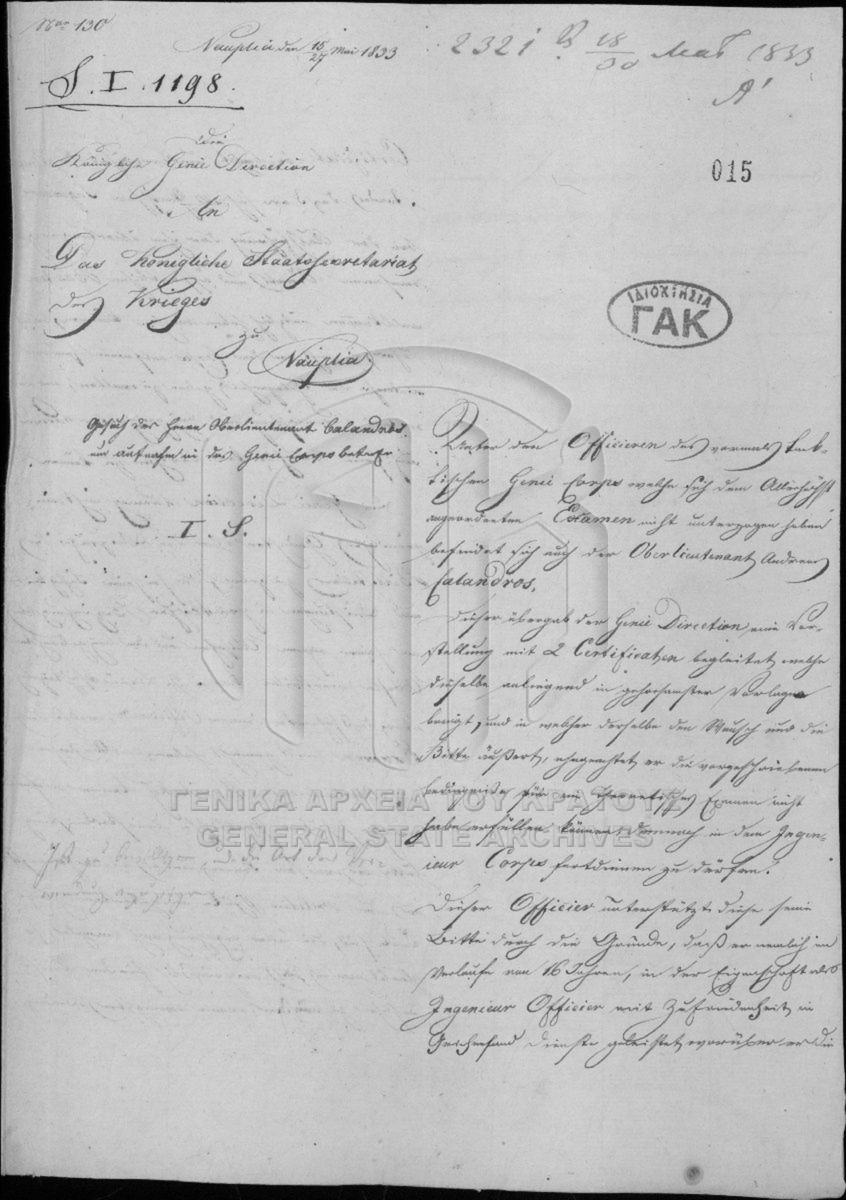 Nro 130
Nauplia den 15/27 Mai 1833
2321 18/30 Μαΐ 1833
Α'
S. I. 1198.
015
Die
Königliche Genie Direction
An
Das Königliche Staatssekretariat
des Krieges
zu
Nauplia.
ΙΔΙΟΚΤΗΣΙΑ
ΓΑΚ
Gesuch des Herrn Oberlieutenant Calandros
um Aufnahme in das Genie Corps betreffend
I. S.
Unter den Officieren des vormals tak-
tischen Genie Corps welche sich dem Allerhöchst
angeordneten Examen nicht unterzogen haben
befindet sich auch der Oberlieutenant Andreas
Calandros.
Dieser übergab der Genie Direction eine Vor-
stellung mit 2 Certificaten begleitet, welche
dieselbe anliegend in gehorsamster Vorlage
bringt, und in welcher derselbe den Wunsch und die
Bitte äußert, ohngeachtet er die vorgeschriebenen
Bedingnisse für ein theoretisches Examen nicht
habe erfüllen können, dennoch in dem Ingen-
ieur Corps fortdienen zu dürfen.
Dieser Officier unterstützt diese seine
Bitte durch die Gründe, daß er nemlich im
Verlaufe von 16 Jahren, in der Eigenschaft als
Ingenieur Officier mit Zufriedenheit in
Griechenland Dienste geleistet, worüber er die
ΓΕΝΙΚΑ ΑΡΧΕΙΑ ΤΟΥ ΚΡΑΤΟΥΣ
GENERAL STATE ARCHIVES